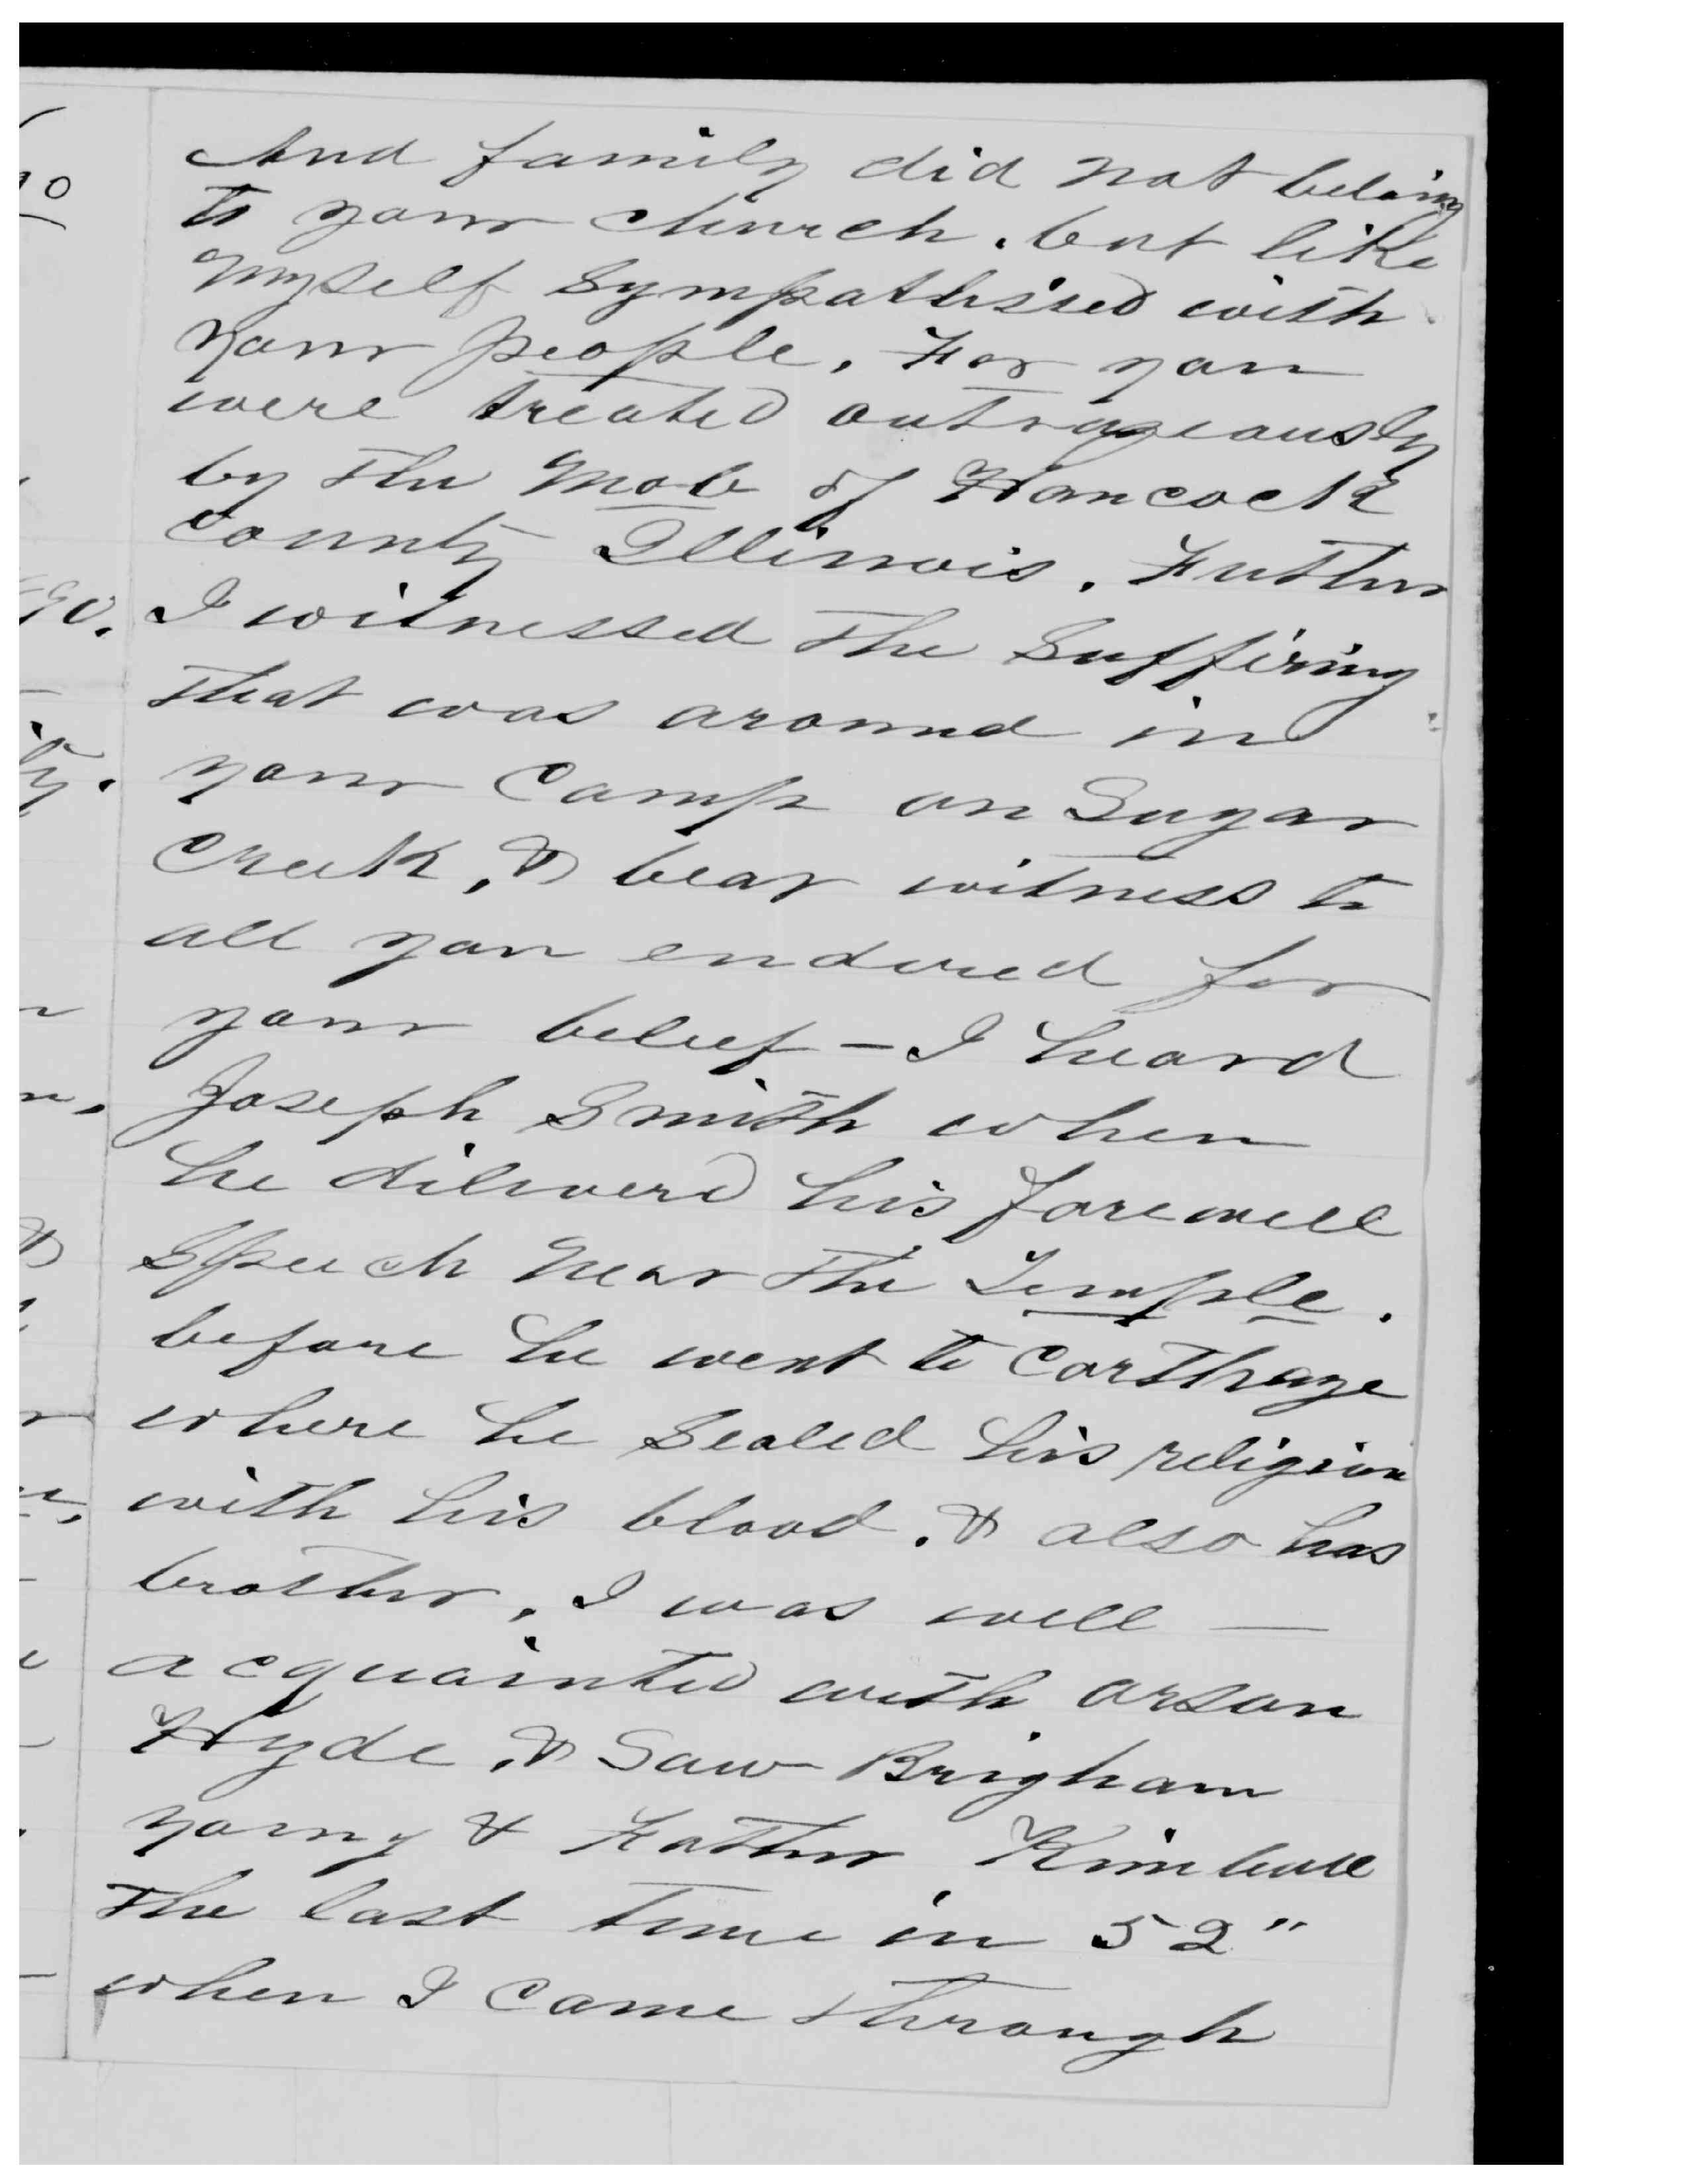 And family did not belong
to your church. but like
myself Sympathised with
your people. For you
were treated outrageously
by the Mob of Hancock
County Illinois. Futher
I witnessed the Suffiring
that was around in
your Camp on Sugar
Creek, & bear witness to
all you endured for
your belief - I heard
Joseph Smith when
he diliverd his farewell
Speech near the Temple.
before he went to Carthage
where he Sealed his religion
with his blood. & also his
brother, I was well —
acquainted with Orson
Hyde, & Saw Brigham
Young & Father Kimball
the last time in 52"
when I Came through